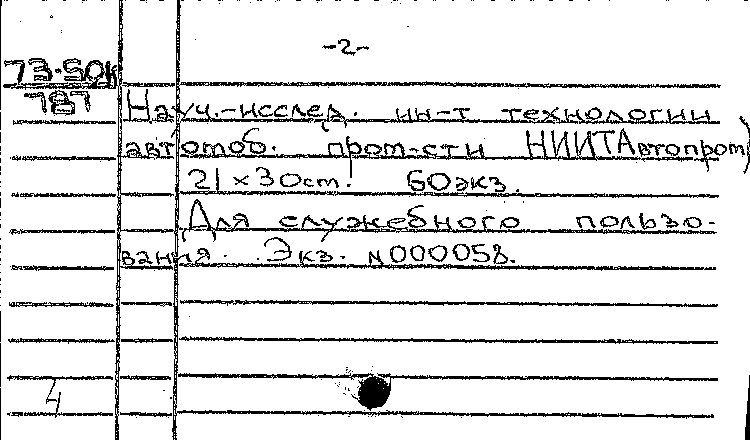 -2-
73-50к
787
Науч.-исслед. ин-т технологии
автомоб. пром-сти НИИТАвтопром)
21 х 30 ст. 60 экз.
Для служебного пользо-
вания. Экз. N 000058.
4